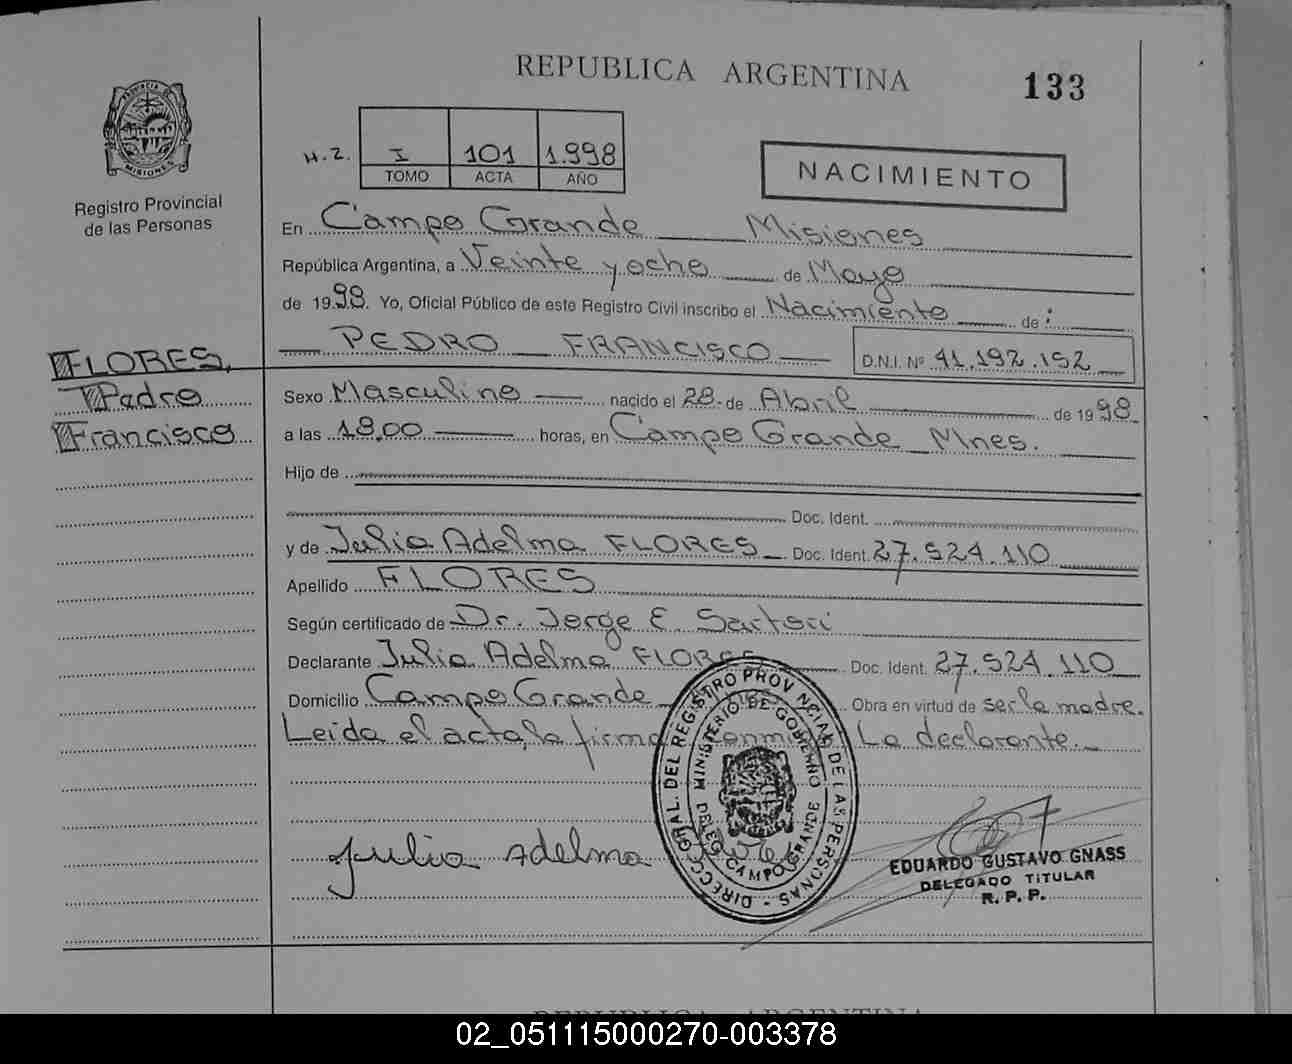 REPUBLICA ARGENTINA
133
PROVINCIA DE MISIONES
Registro Provincial
de las Personas
H.Z. I 101 1.998
TOMO ACTA AÑO
NACIMIENTO
En Campo Grande Misiones
República Argentina, a Veinte y ocho de Mayo
de 1998. Yo, Oficial Público de este Registro Civil inscribo el Nacimiento de:
PEDRO FRANCISCO D.N.I. Nº 41.192.152
FLORES,
Pedro
Francisco
Sexo Masculino nacido el 28 de Abril de 1998
a las 18,00 horas, en Campo Grande Mnes.
Hijo de
Doc. Ident.
y de Julia Adelma FLORES Doc. Ident. 27.524.110
Apellido FLORES
Según certificado de Dr. Jorge E Sartori
Declarante Julia Adelma FLORES Doc. Ident. 27.524.110
Domicilio Campo Grande Obra en virtud de ser la madre.
Leída el acta, la firma conmigo La declarante.
DIRECC. GRAL. DEL REGISTRO PROVINCIAL DE LAS PERSONAS
MINISTERIO DE GOBIERNO
DELEG. CAMPO GRANDE
Julia Adelma
EDUARDO GUSTAVO GNASS
DELEGADO TITULAR
R. P. P.
REPUBLICA ARGENTINA
02_051115000270-003378